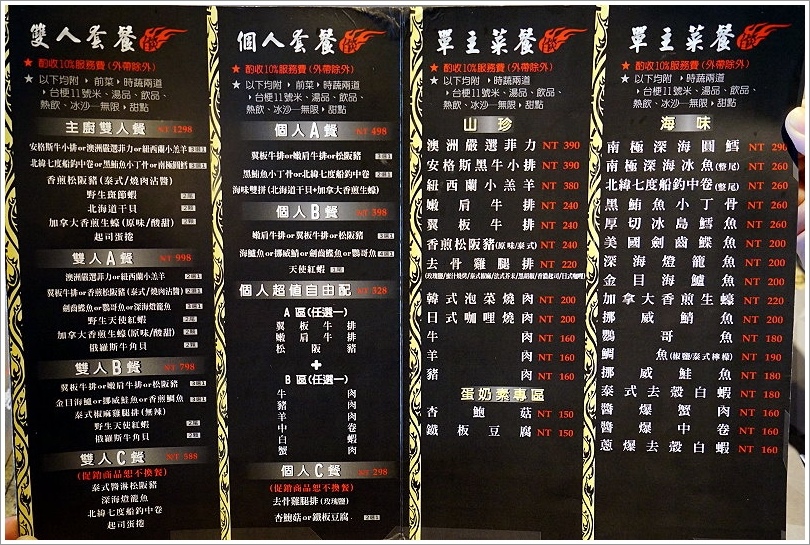 雙人套餐
★ 酌收10%服務費(外帶除外)
★ 以下均附 ‣ 前菜 ‣ 時蔬兩道
‣ 台梗11號米、湯品、飲品、
熱飲、冰沙—無限 ‣ 甜點
主廚雙人餐 NT 1298
安格斯牛小排or澳洲嚴選菲力or紐西蘭小羔羊 3選1
北緯七度船釣中卷or黑鮪魚小丁骨or南極圓鱈 3選1
香煎松阪豬(泰式/燒肉沾醬)
野生斑節蝦 2隻
北海道干貝 2顆
加拿大香煎生蠔(原味/酸甜) 2顆
起司蛋捲
雙人A餐 NT 998
澳洲嚴選菲力or紐西蘭小羔羊 2選1
翼板牛排or香煎松阪豬(泰式/燒肉沾醬) 2選1
劍齒鰈魚or鸚哥魚or深海燈籠魚 3選1
野生天使紅蝦 2隻
加拿大香煎生蠔(原味/酸甜) 2顆
俄羅斯牛角貝 2顆
雙人B餐 NT 798
翼板牛排or嫩肩牛排or松阪豬 3選1
金目海鱸or挪威鮭魚or香煎鯛魚 3選1
泰式椒麻雞腿排(無辣)
野生天使紅蝦 2隻
俄羅斯牛角貝 2顆
雙人C餐 NT 588
(促銷商品恕不換餐)
泰式醬淋松阪豬
深海燈籠魚
北緯七度船釣中卷
起司蛋捲
個人套餐
★ 酌收10%服務費(外帶除外)
★ 以下均附 ‣ 前菜 ‣ 時蔬兩道
‣ 台梗11號米、湯品、飲品、
熱飲、冰沙—無限 ‣ 甜點
個人A餐 NT 498
翼板牛排or嫩肩牛排or松阪豬 3選1
黑鮪魚小丁骨or北緯七度船釣中卷 2選1
海味雙拼(北海道干貝+加拿大香煎生蠔)
個人B餐 NT 398
嫩肩牛排or翼板牛排or松阪豬 3選1
海鱸魚or挪威鯖or劍齒鰈or鸚哥魚 4選1
天使紅蝦 1隻
個人超值自由配 NT 328
A 區(任選一)
翼板牛排
嫩肩牛排
松阪豬
+
B 區(任選一)
牛肉
豬肉
羊肉
中卷
白蝦
蟹肉
個人C餐 NT 298
(促銷商品恕不換餐)
去骨雞腿排(玫瑰鹽)
杏鮑菇or鐵板豆腐 2選1
單主菜餐
★ 酌收10%服務費(外帶除外)
★ 以下均附 ‣ 前菜 ‣ 時蔬兩道
‣ 台梗11號米、湯品、飲品、
熱飲、冰沙—無限 ‣ 甜點
山珍
澳洲嚴選菲力 NT 390
安格斯黑牛小排 NT 390
紐西蘭小羔羊 NT 380
嫩肩牛排 NT 240
翼板牛排 NT 240
香煎松阪豬(原味/泰式) NT 240
去骨雞腿排 NT 220
韓式泡菜燒肉 NT 200
日式咖哩燒肉 NT 200
牛肉 NT 160
羊肉 NT 160
豬肉 NT 160
蛋奶素專區
杏鮑菇 NT 150
鐵板豆腐 NT 150
單主菜餐
★ 酌收10%服務費(外帶除外)
★ 以下均附 ‣ 前菜 ‣ 時蔬兩道
‣ 台梗11號米、湯品、飲品、
熱飲、冰沙—無限 ‣ 甜點
海味
南極深海圓鱈 NT 290
南極深海冰魚(整尾) NT 260
北緯七度船釣中卷(整尾) NT 260
黑鮪魚小丁骨 NT 260
厚切冰島鱈魚 NT 260
美國劍齒鰈魚 NT 200
深海燈籠魚 NT 200
金目海鱸魚 NT 200
加拿大香煎生蠔 NT 220
挪威鯖魚 NT 200
鸚哥魚 NT 180
鯛魚(椒鹽/泰式檸檬) NT 190
挪威鮭魚 NT 180
泰式去殼白蝦 NT 180
醬爆蟹肉 NT 160
醬爆中卷 NT 160
蔥爆去殼白蝦 NT 160